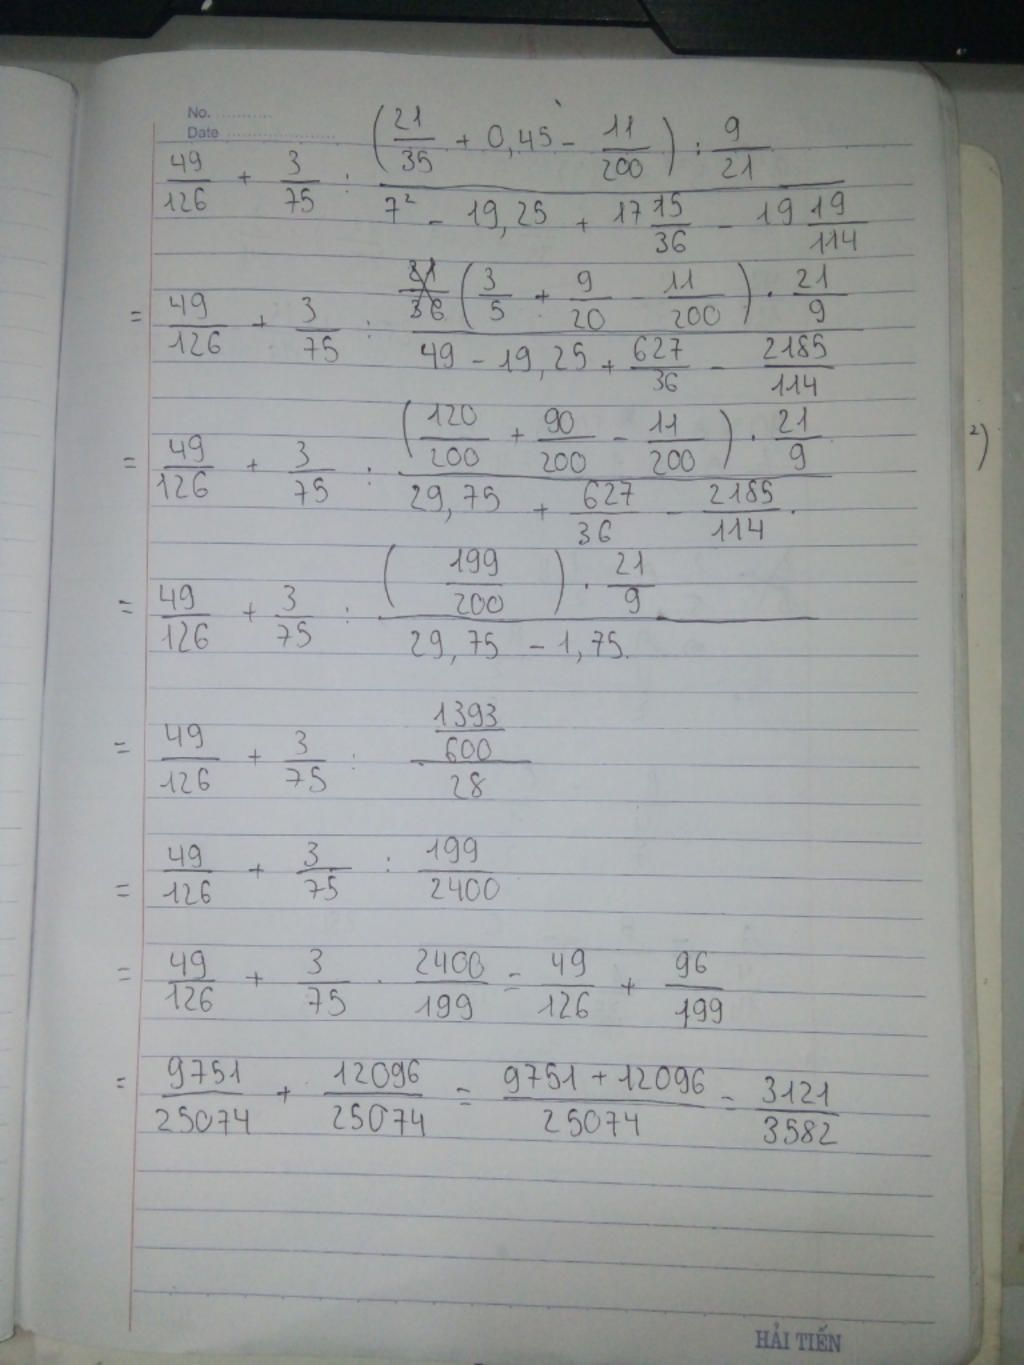 No. ...........
Date .....................
49/126 + 3/75 : ((21/35 + 0,45 - 11/200) : 9/21)/(7² - 19,25 + 17 15/36 - 19 19/114)
= 49/126 + 3/75 : ((3/5 + 9/20 - 11/200) . 21/9)/(49 - 19,25 + 627/36 - 2185/114)
= 49/126 + 3/75 : ((120/200 + 90/200 - 11/200) . 21/9)/(29,75 + 627/36 - 2185/114)
= 49/126 + 3/75 : ((199/200) . 21/9)/(29,75 - 1,75)
= 49/126 + 3/75 : (1393/600)/28
= 49/126 + 3/75 : 199/2400
= 49/126 + 3/75 . 2400/199 = 49/126 + 96/199
= 9751/25074 + 12096/25074 = (9751 + 12096)/25074 = 3121/3582
2)
HẢI TIẾN